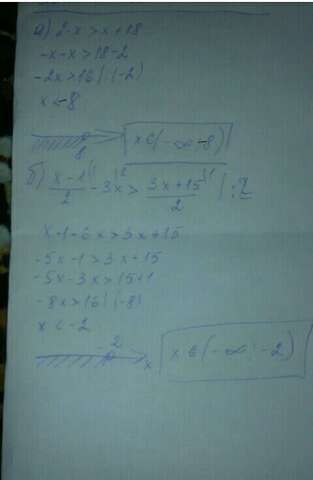 а) 2-x>x+18
-x-x>18-2
-2x>16 |:(-2)
x<-8
8 x∈(-∞ -8)
б) x-1/2 - 3x > 3x+15/2 | :2
x-1-6x>3x+15
-5x-1>3x+15
-5x-3x>15+1
-8x>16 |(-8)
x<-2
-2 x x∈(-∞ -2)